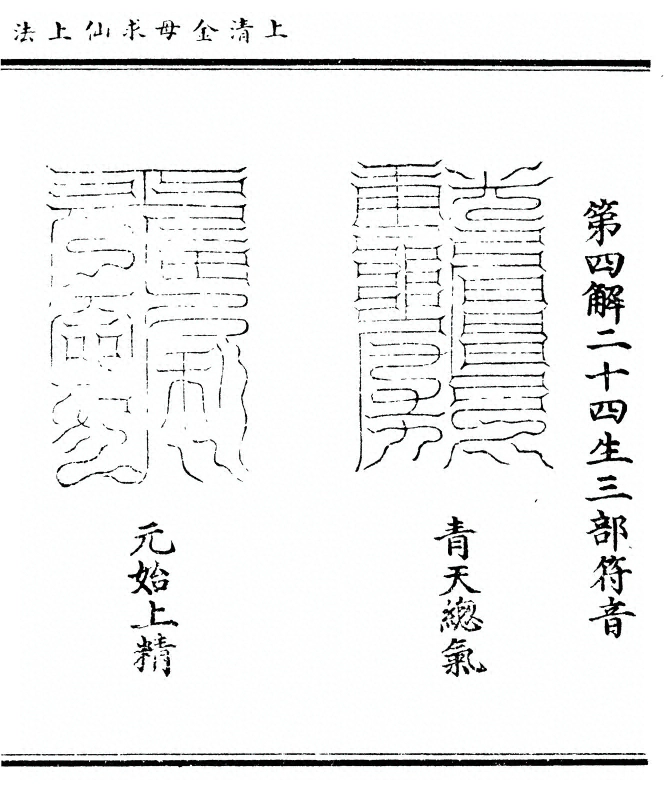 上清金母求仙上法
第四解二十四生三部符音
青天總氣
元始上精